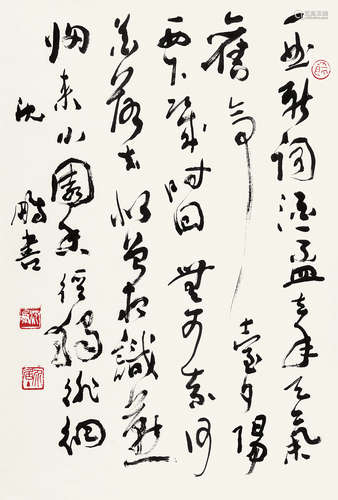 一曲新詞酒一盃去年天氣
舊亭臺夕陽
西下幾时回無可奈何
花落去似曾相識燕
歸来小園香徑獨徘徊
沈鵬書